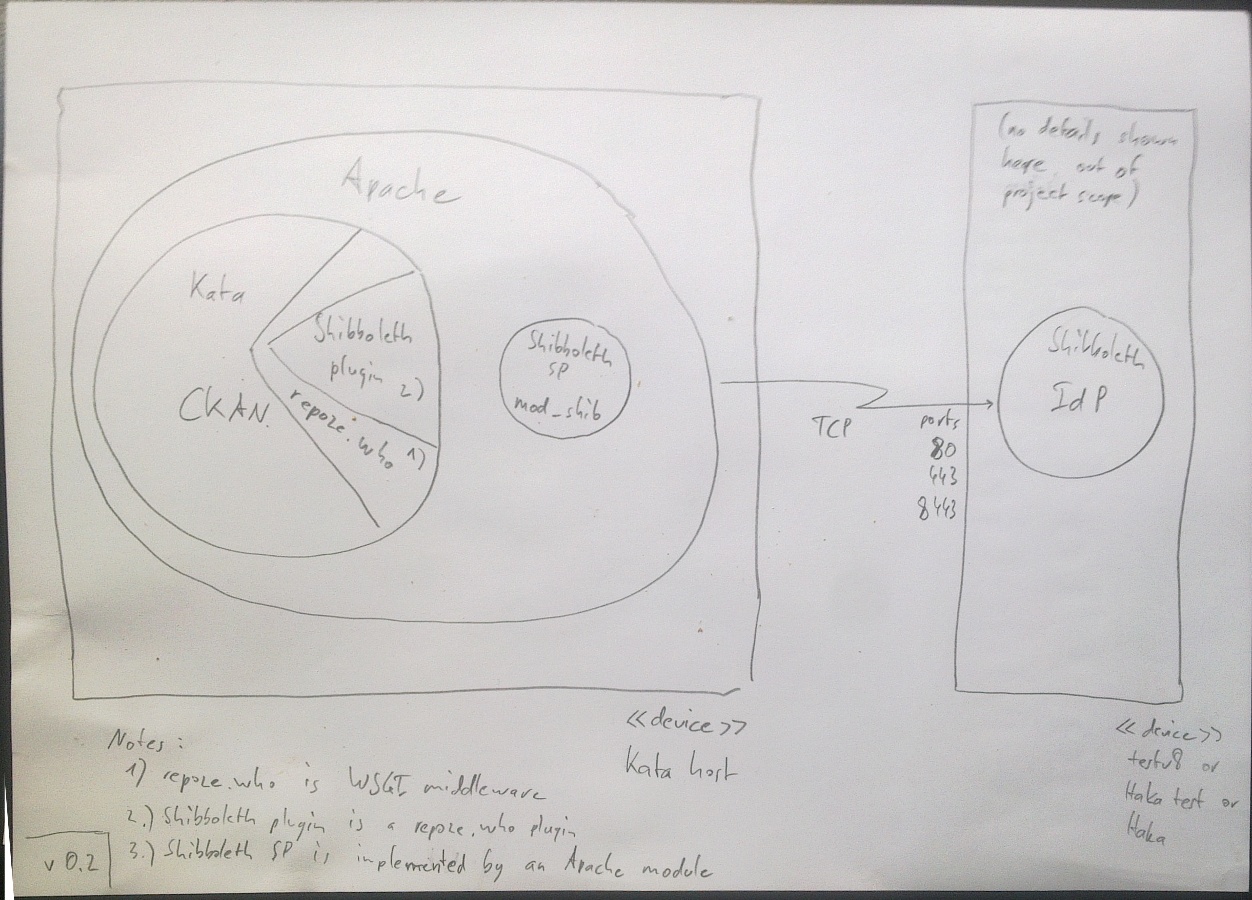 Apache
Kata
CKAN.
Shibboleth
plugin 2)
repoze.who 1)
Shibboleth
SP
mod_shib
TCP
ports
80
443
8443
(no details shown
here out of
project scope)
Shibboleth
IdP
<<device>>
Kata host
<<device>>
testv8 or
Haka test or
Haka
Notes:
1) repoze.who is WSGI middleware
2.) Shibboleth plugin is a repoze.who plugin
3.) Shibboleth SP is implemented by an Apache module
v 0.2